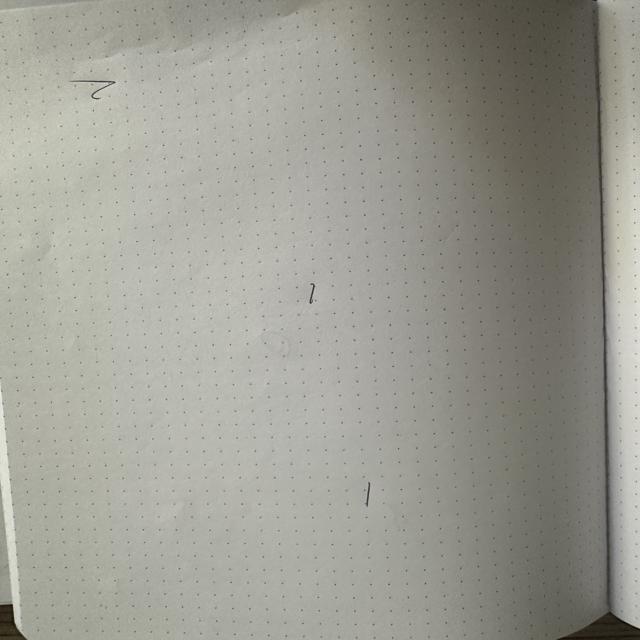 2
1
1